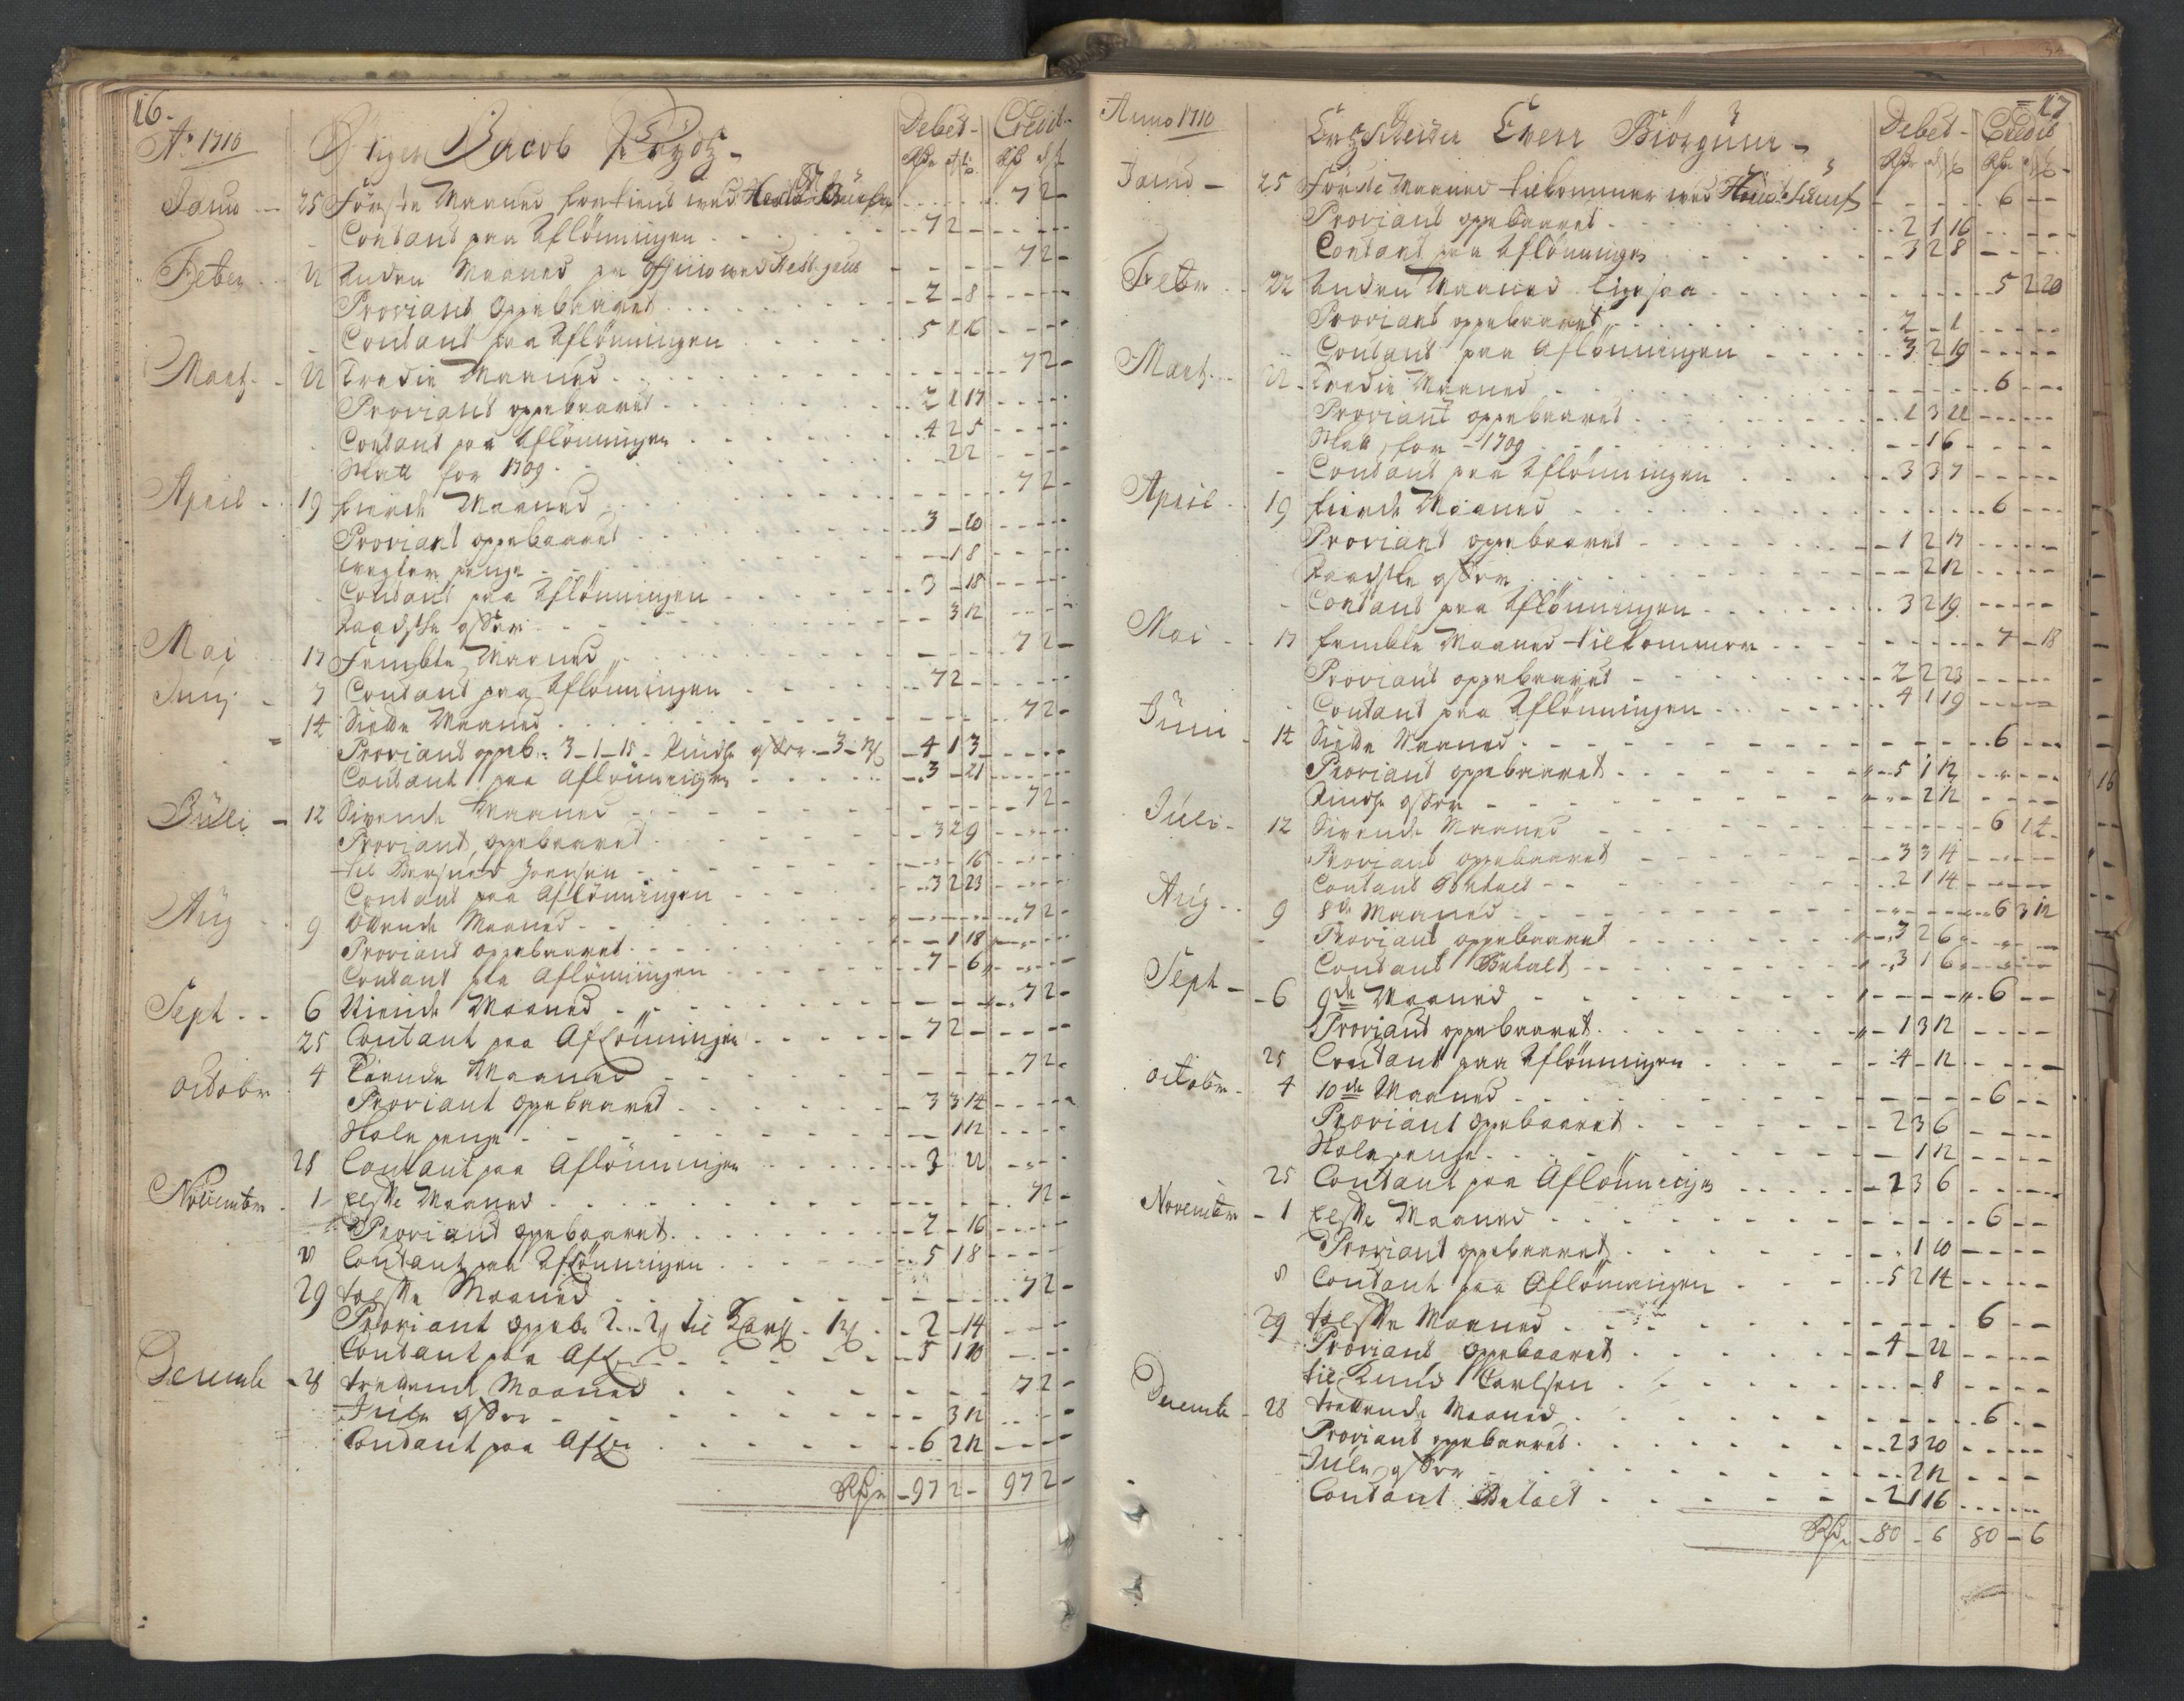 16.
Ao 1710
Stiger Jacob Prydtz
Debet Credit
Janu 25 Förste Maaned fortient wed 7 2 -
Contant paa Aflönningen 7 2 -
Feber 22 Anden Maaned 7 2 -
Proviant Oppebaaret 2 - 8
Contant paa Aflönningen 5 1 16
Mart 22 Tredie Maaned 7 2 -
Proviant oppebaaret 2 1 17
Contant paa Aflönningen 4 2 5
Skatt for 1709 22
April 19 fierde Maaned 7 2 -
Proviant oppebaaret 3 - 10
penge - 1 8
Contant paa Aflönningen 3 - 18
offer - 3 12
Mai 17 Fembte Maaned 7 2 -
Junj 7 Contant paa Aflönningen 7 2 -
14 Siette Maaned 7 2 -
Proviant oppeb: 3-1-15 - Pindse offer - 3-12 4 1 3
Contant paa Aflönningen 3 - 21
Juli 12 Sivende Maaned 7 2 -
Proviant oppebaaret 3 2 9
til Joensen 16
Contant paa Aflönningen 3 2 23
Aug 9 Ottende Maaned 7 2 -
Proviant oppebaaret - 1 18
Contant paa Aflönningen 7 - 6
Sept 6 Niende Maaned 7 2 -
25 Contant paa Aflönningen 7 2 -
Octobr 4 Tiende Maaned 7 2 -
Proviant Oppebaaret 3 3 14
penge - 1 12
25 Contant paa Aflönningen 3 22
Novembr 1 Elfte Maaned 7 2 -
Proviant oppebaaret 2 - 16
Contant paa Aflönningen 5 1 8
29 tolfte Maaned 7 2 -
Proviant oppeb: 2 - 14
Contant paa Afl 5 1 10
Decemb 28 trettende Maaned 7 2 -
Jule offer - 3 12
Contant paa Afl 6 2 12
Rdr 97 2 - 97 2 -
17
Anno 1710
Ertzscheider Iver Biörgum
Debet Credit
Janu 25 Förste Maaned tilkommer wed 6 - -
Proviant oppebaaret 2 1 16
Contant paa Aflönningen 3 2 8
Febr 22 Anden Maaned ligesaa 5 2 20
Proviant oppebaaret 2 - 1
Contant paa Aflönningen 3 2 19
Mart 22 Tredie Maaned 6 - -
Proviant oppebaaret 1 3 22
Skatt for 1709 - 16
Contant paa Aflönningen 3 3 7
April 19 fierde Maaned 6 - -
Proviant oppebaaret 1 2 17
offer - 2 12
Contant paa Aflönningen 3 2 19
Mai 17 fembte Maaned tilkommer 7 - 18
Proviant oppebaaret 2 2 23
Contant paa Aflönningen 4 1 19
Juni 14 Siette Maaned 6 - -
Proviant oppebaaret 5 1 12
Pindse offer - 2 12
Juli 12 Sivende Maaned 6 1 4
Proviant oppebaaret 3 3 14
Contant Betalt 2 1 14
Aug 9 8de Maaned 6 3 12
Proviant oppebaaret 3 2 6
Contant Betalt 3 1 6
Sept 6 9de Maaned 6 - -
Proviant oppebaaret 1 3 12
25 Contant paa Aflönningen 4 - 12
Octobr 4 10de Maaned 6 - -
Proviant Oppebaaret 2 3 6
penge - 1 12
25 Contant paa Aflönningen 2 3 6
Novembr 1 Elfte Maaned 6 - -
Proviant oppebaaret - 1 10
8 Contant paa Aflönningen 5 2 14
29 tolfte Maaned 6 - -
Proviant Oppebaaret 4 - 22
til Knud Carlsen - 8
Decemb 28 trettende Maaned 6 - -
Proviant oppebaaret 2 3 20
Jule offer - 2 12
Contant Betalt 2 1 16
Rdr 80 - 6 80 - 6